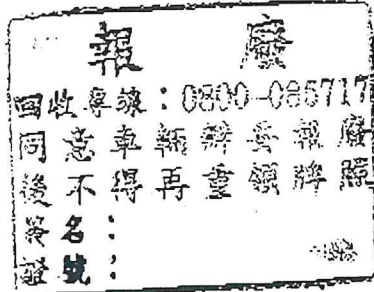 報廢
回收專線：0800-085717
同意車輛辦妥報廢
後不得再重領牌照
簽名：
證號：